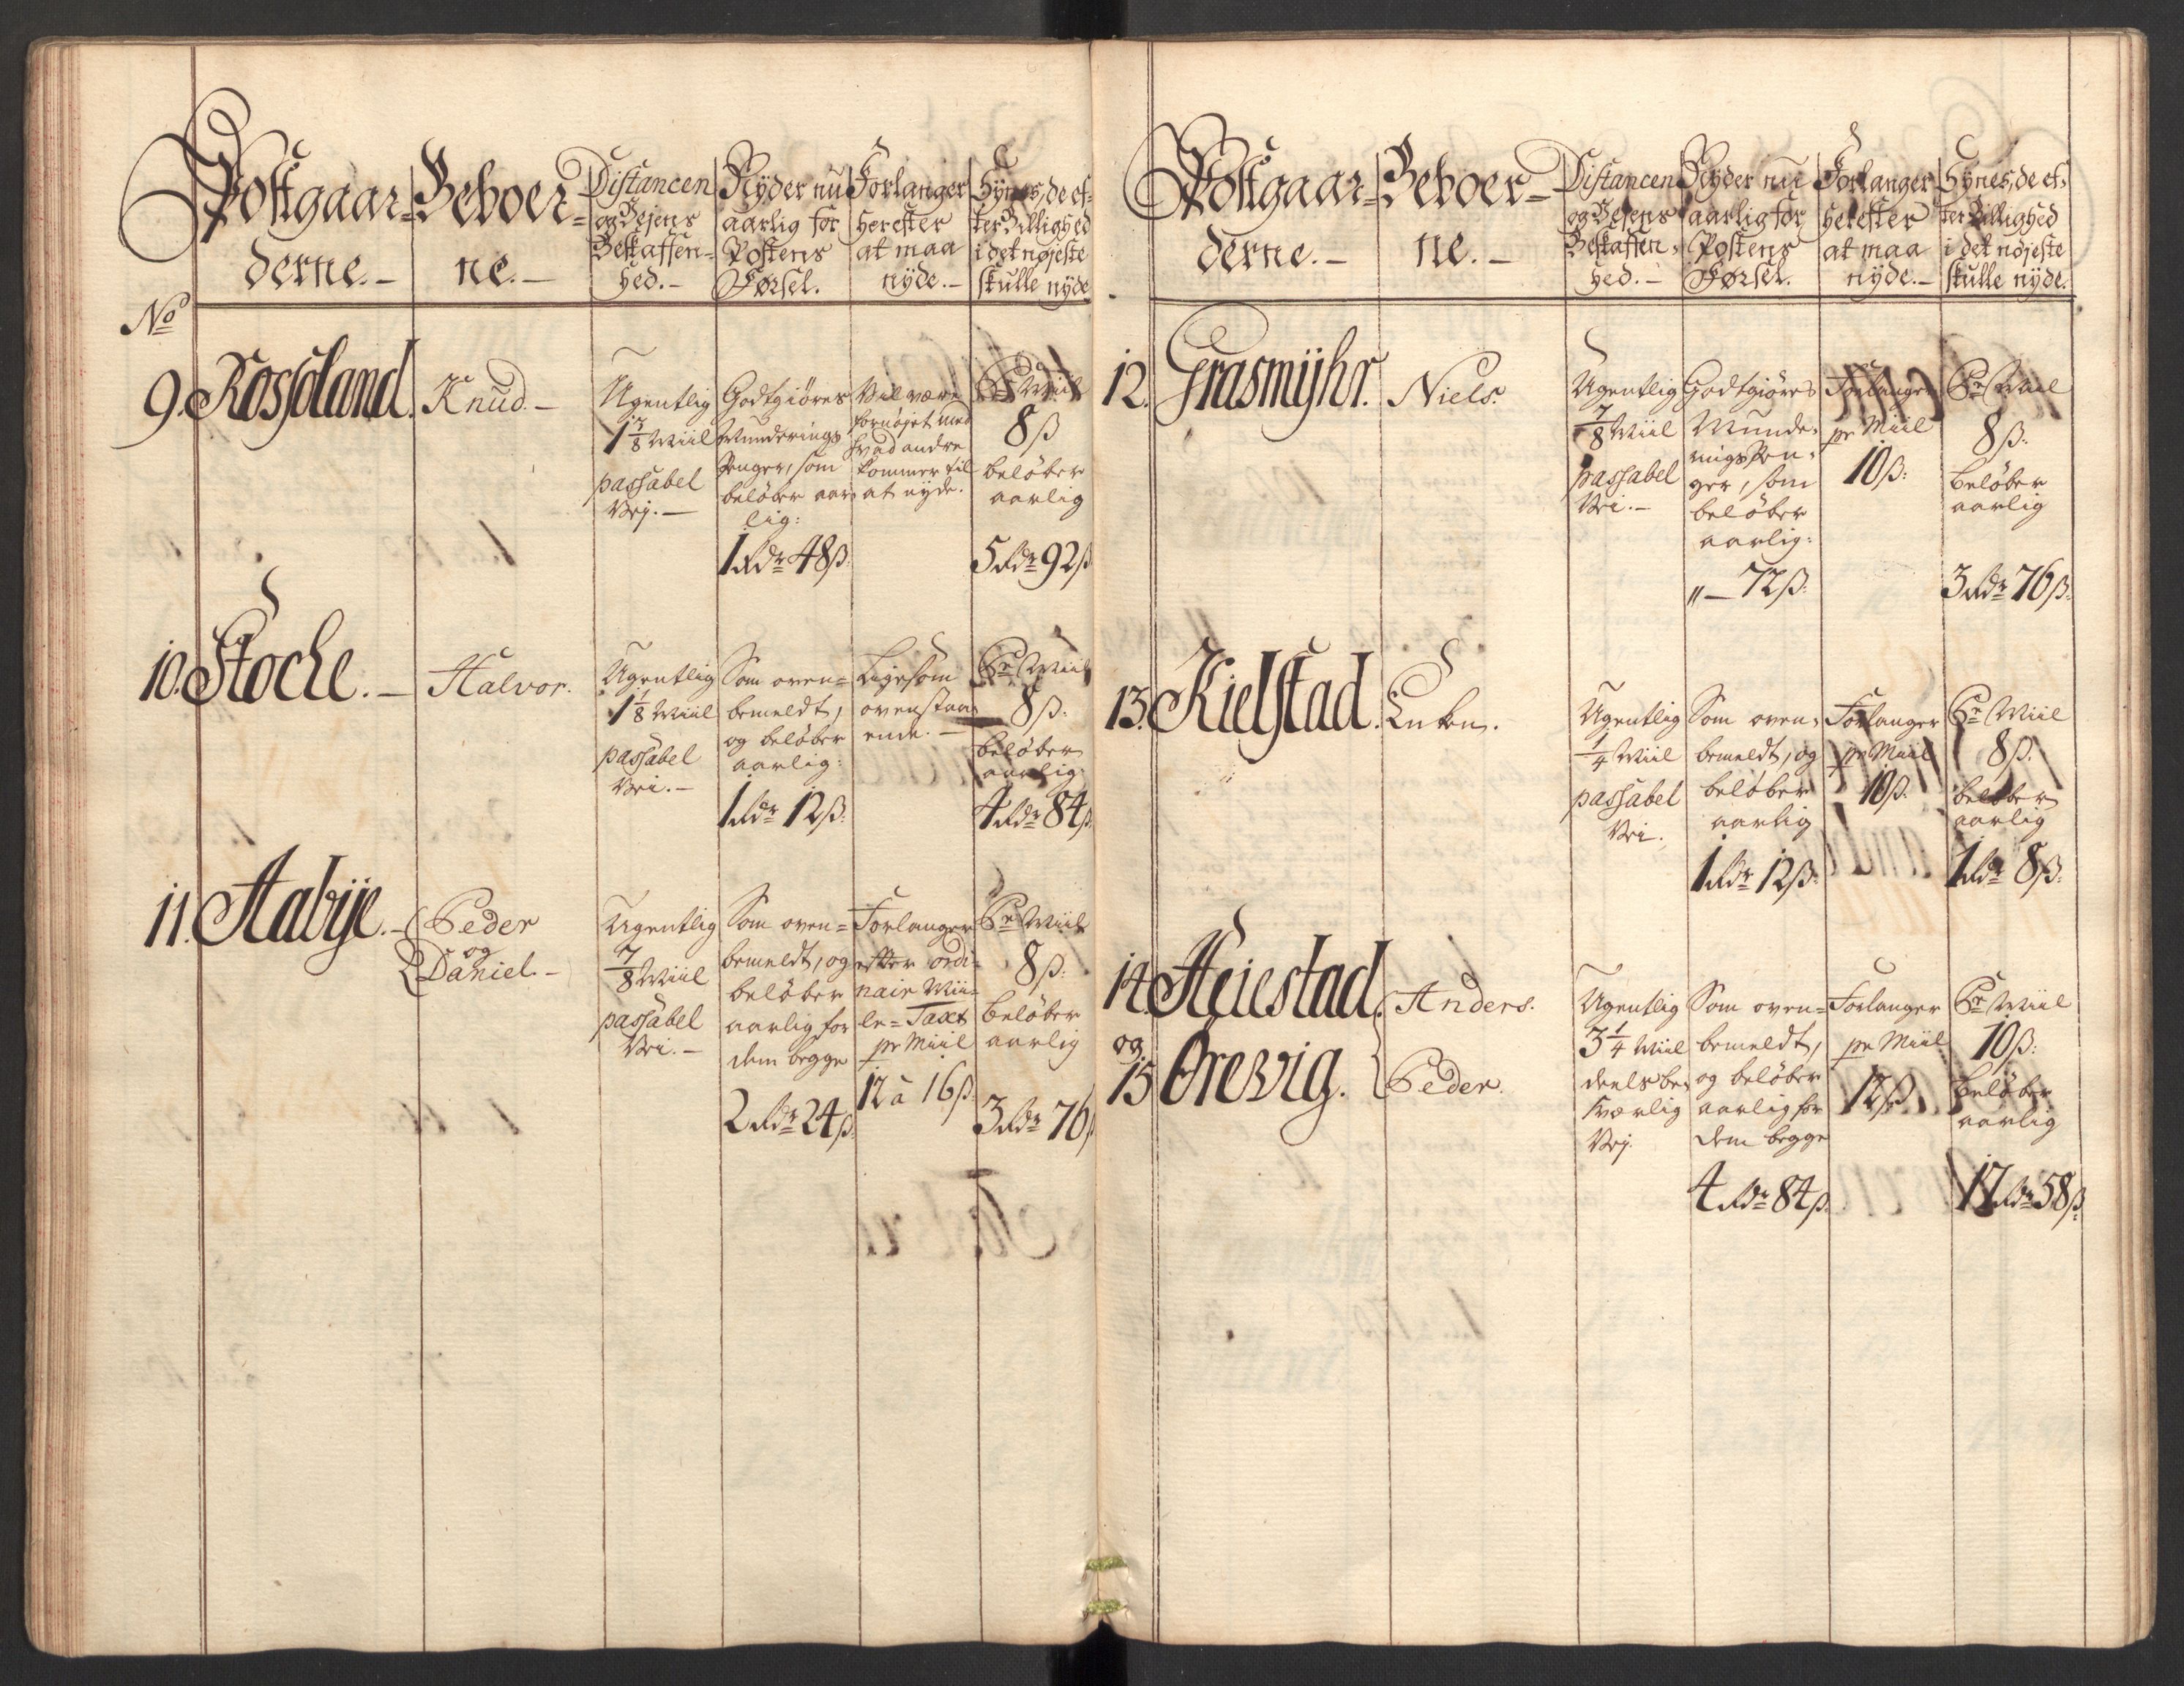 Postgaar=
derne.-
Beboer=
ne.-
Distancen
og Vejens
Beskaffen=
hed.-
Nyder nu
aarlig for
Postens
Førsel.
Forlanger
herefter
at maa
nyde.-
Synes, de ef=
ter Billighed
i det nøjeste
skulle nyde
No
9. Rosseland.
Knud.-
Ugentlig
1 7/8 Miil
passabel
Vej.-
Godtgiøres
Munderings
Penger, som
beløber aar=
lig:
1 Rdr 48 ß.
Vil være
fornøjet med
hvad andre
kommer til
at nyde.
Pr Miil
8 ß
beløber
aarlig
5 Rdr 92 ß
10. Stocke.-
Halvor.
Ugentlig
1 1/8 Miil
passabel
Vei.-
Som oven=
bemeldt,
og beløber
aarlig:
1 Rdr 12 ß.
Ligesom
ovenstaa=
ende.-
Pr Miil
8 ß.
beløber
aarlig:
4 Rdr 84 ß.
11. Aabÿe.-
Peder
og
Daniel.-
Ugentlig
7/8 Miil
passabel
Vei.-
Som oven=
bemeldt, og
beløber
aarlig for
dem begge
2 Rdr 24 ß.
Forlanger
efter ordi=
nair Mii=
le=Taxt
pr Miil
12 à 16 ß.
Pr Miil
8 ß.
beløber
aarlig
3 Rdr 76 ß
Postgaar=
derne.-
Beboer=
ne.-
Distancen
og Vejens
Beskaffen=
hed.-
Nyder nu
aarlig for
Postens
Førsel.
Forlanger
herefter
at maa
nyde.-
Synes, de ef=
ter Billighed
i det nøjeste
skulle nyde.
12. Grasmÿhr.
Niels.
Ugentlig
7/8 Miil
passabel
Vei.-
Godtgiøres
Munde=
rings Pen=
ger, som
beløber
aarlig:
" - 72 ß.
Forlanger
pr Miil
10 ß.
Pr Miil
8 ß.
beløber
aarlig
3 Rdr 76 ß.
13. Kielstad.
Ugentlig
1/4 Miil
passabel
Vei.
Som oven=
bemeldt, og
beløber
aarlig
1 Rdr 12 ß.
Forlanger
pr Miil
10 ß.
Pr Miil
8 ß.
beløber
aarlig
1 Rdr 8 ß.
14. Heiestad.
og
15 Örevig.
Anders.
Peder.
Ugentlig
3 1/4 Miil
deels be=
sværlig
Vej.
Som oven=
bemeldt,
og beløber
aarlig for
dem begge
4 Rdr 84 ß.
Forlanger
pr Miil
12 ß.
Pr Miil
10 ß.
beløber
aarlig
17 Rdr 58 ß.